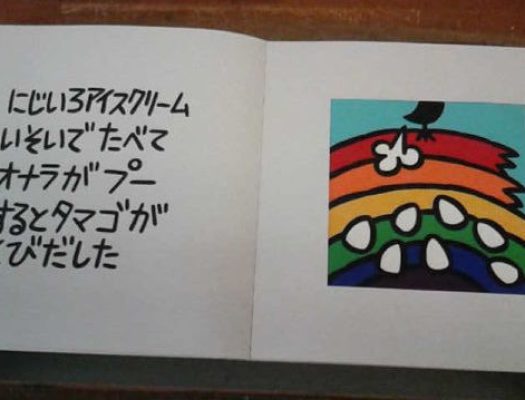 にじいろアイスクリーム
いそいで たべて
オナラが プー
するとタマゴが
とびだした